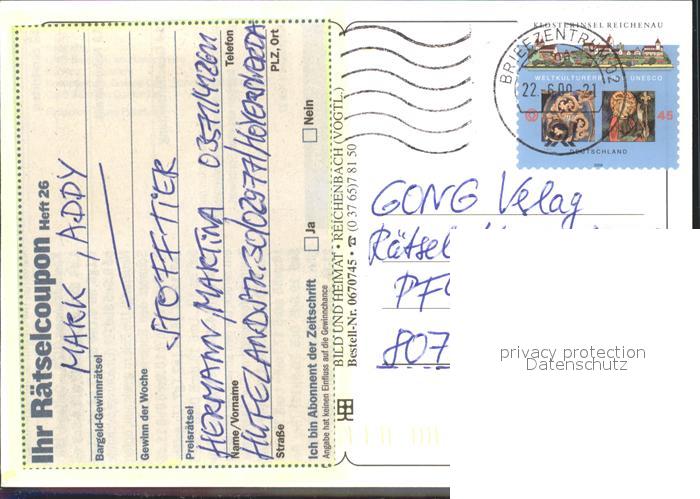 Ihr Rätselcoupon Heft 26
MARK, ADDY
Bargeld-Gewinnrätsel
STOFFTIER
Gewinn der Woche
Preisrätsel
HERMANN, MARTINA 03571/412611
Name/Vorname Telefon
HUFELANDSTR. 30/02977/HOYERSWERDA
Straße PLZ, Ort
Ich bin Abonnent der Zeitschrift Ja Nein
Angabe hat keinen Einfluss auf die Gewinnchance
BILD UND HEIMAT • REICHENBACH (VOGTL.)
Bestell-Nr. 0670745 • ☎ (0 37 65) 7 81 50
KLOSTERINSEL REICHENAU
WELTKULTURERBE DER UNESCO
45
DEUTSCHLAND
BRIEFZENTRUM
22.6.09-21
GONG Verlag
Rätsel
807
privacy protection
Datenschutz